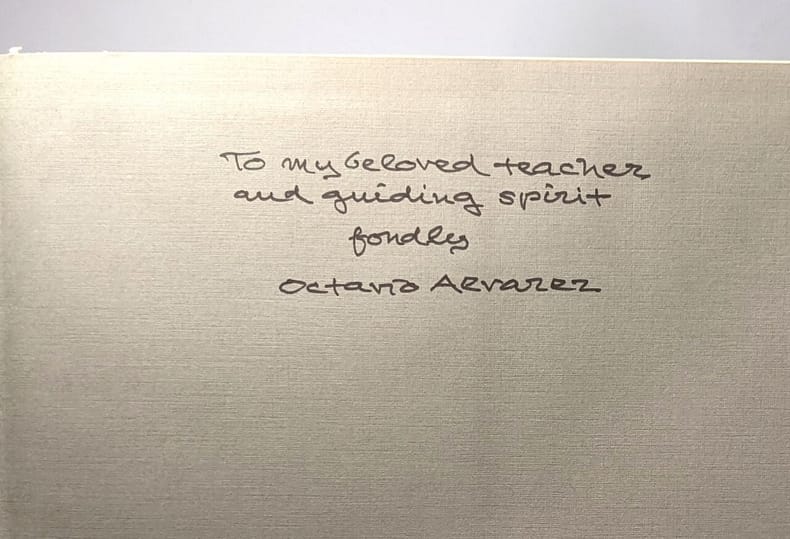 To my beloved teacher
and guiding spirit
fondly
Octavio Alvarez